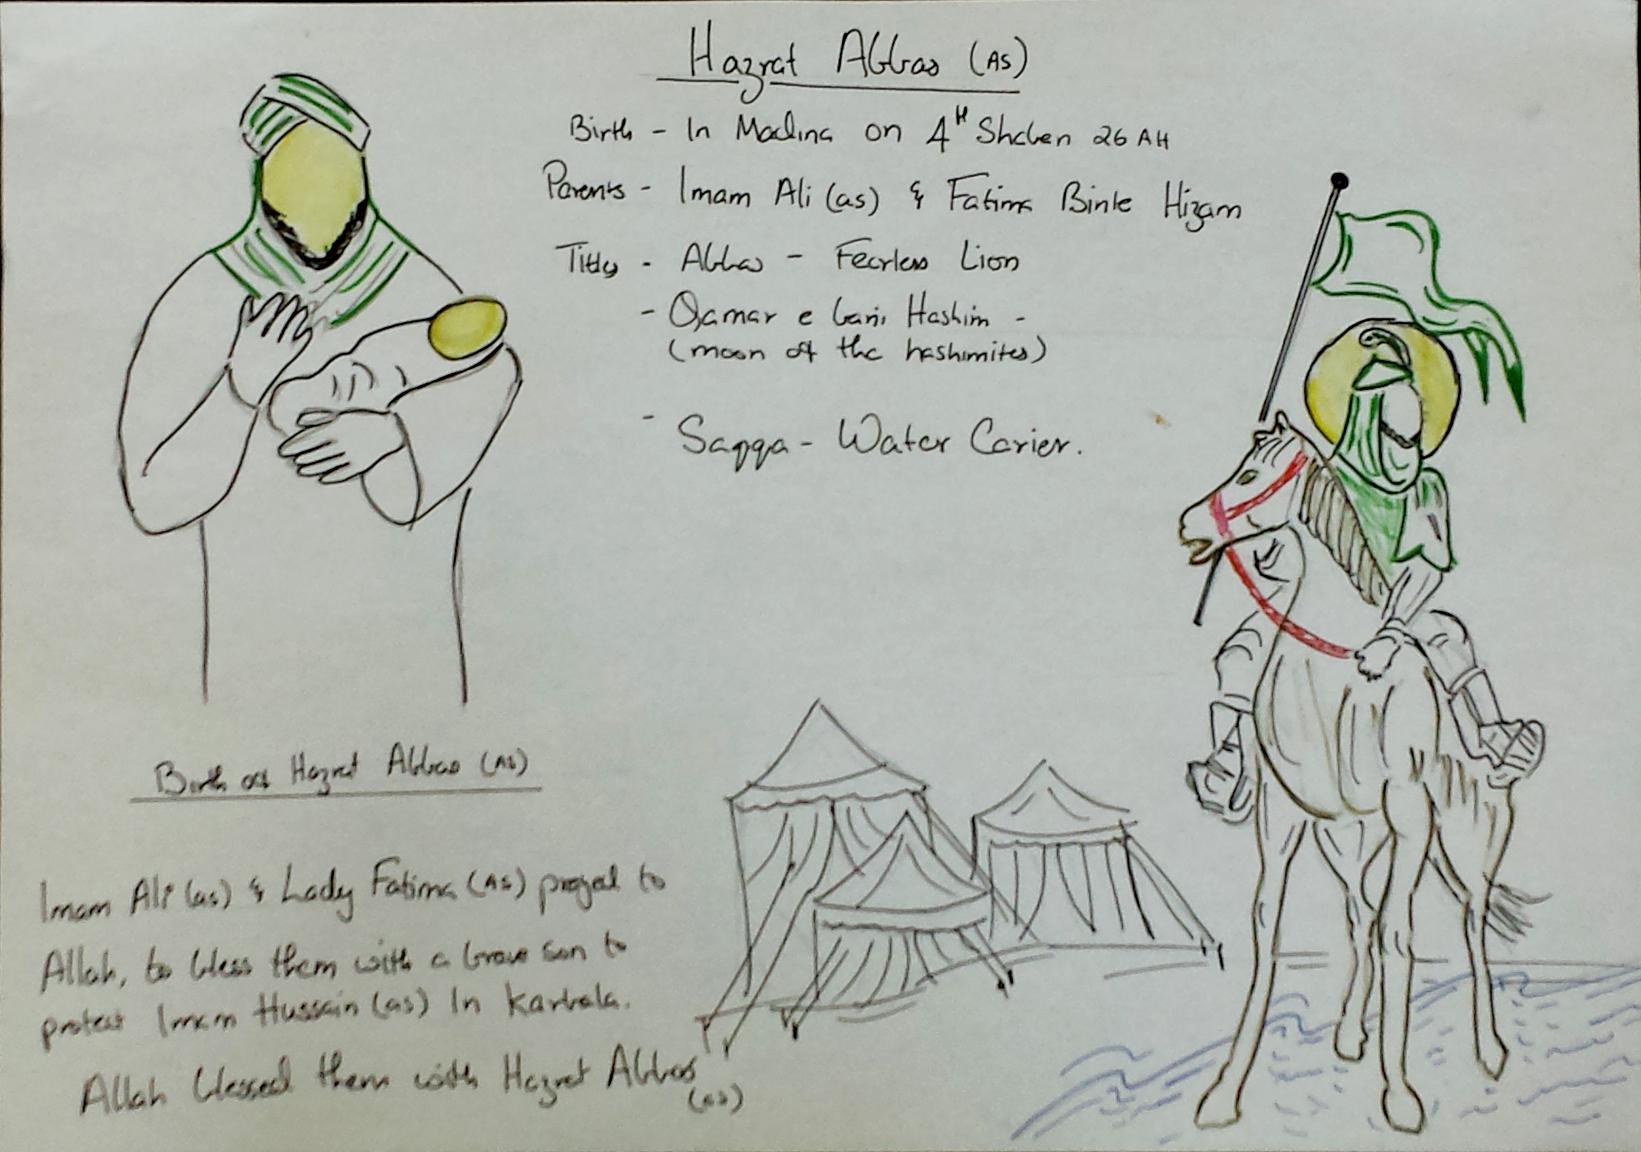 Hazrat Abbas (AS)
Birth - In Madina on 4th Shaban 26 AH
Parents - Imam Ali (as) & Fatima Binte Hizam
Titles - Abbas - Fearless Lion
- Qamar e bani Hashim -
(moon of the hashimites)
- Saqqa - Water Carier.
Birth of Hazrat Abbas (AS)
Imam Ali (as) & Lady Fatima (AS) prayed to
Allah, to bless them with a brave son to
protect Imam Hussain (as) In Karbala.
Allah blessed them with Hazrat Abbas
(as)